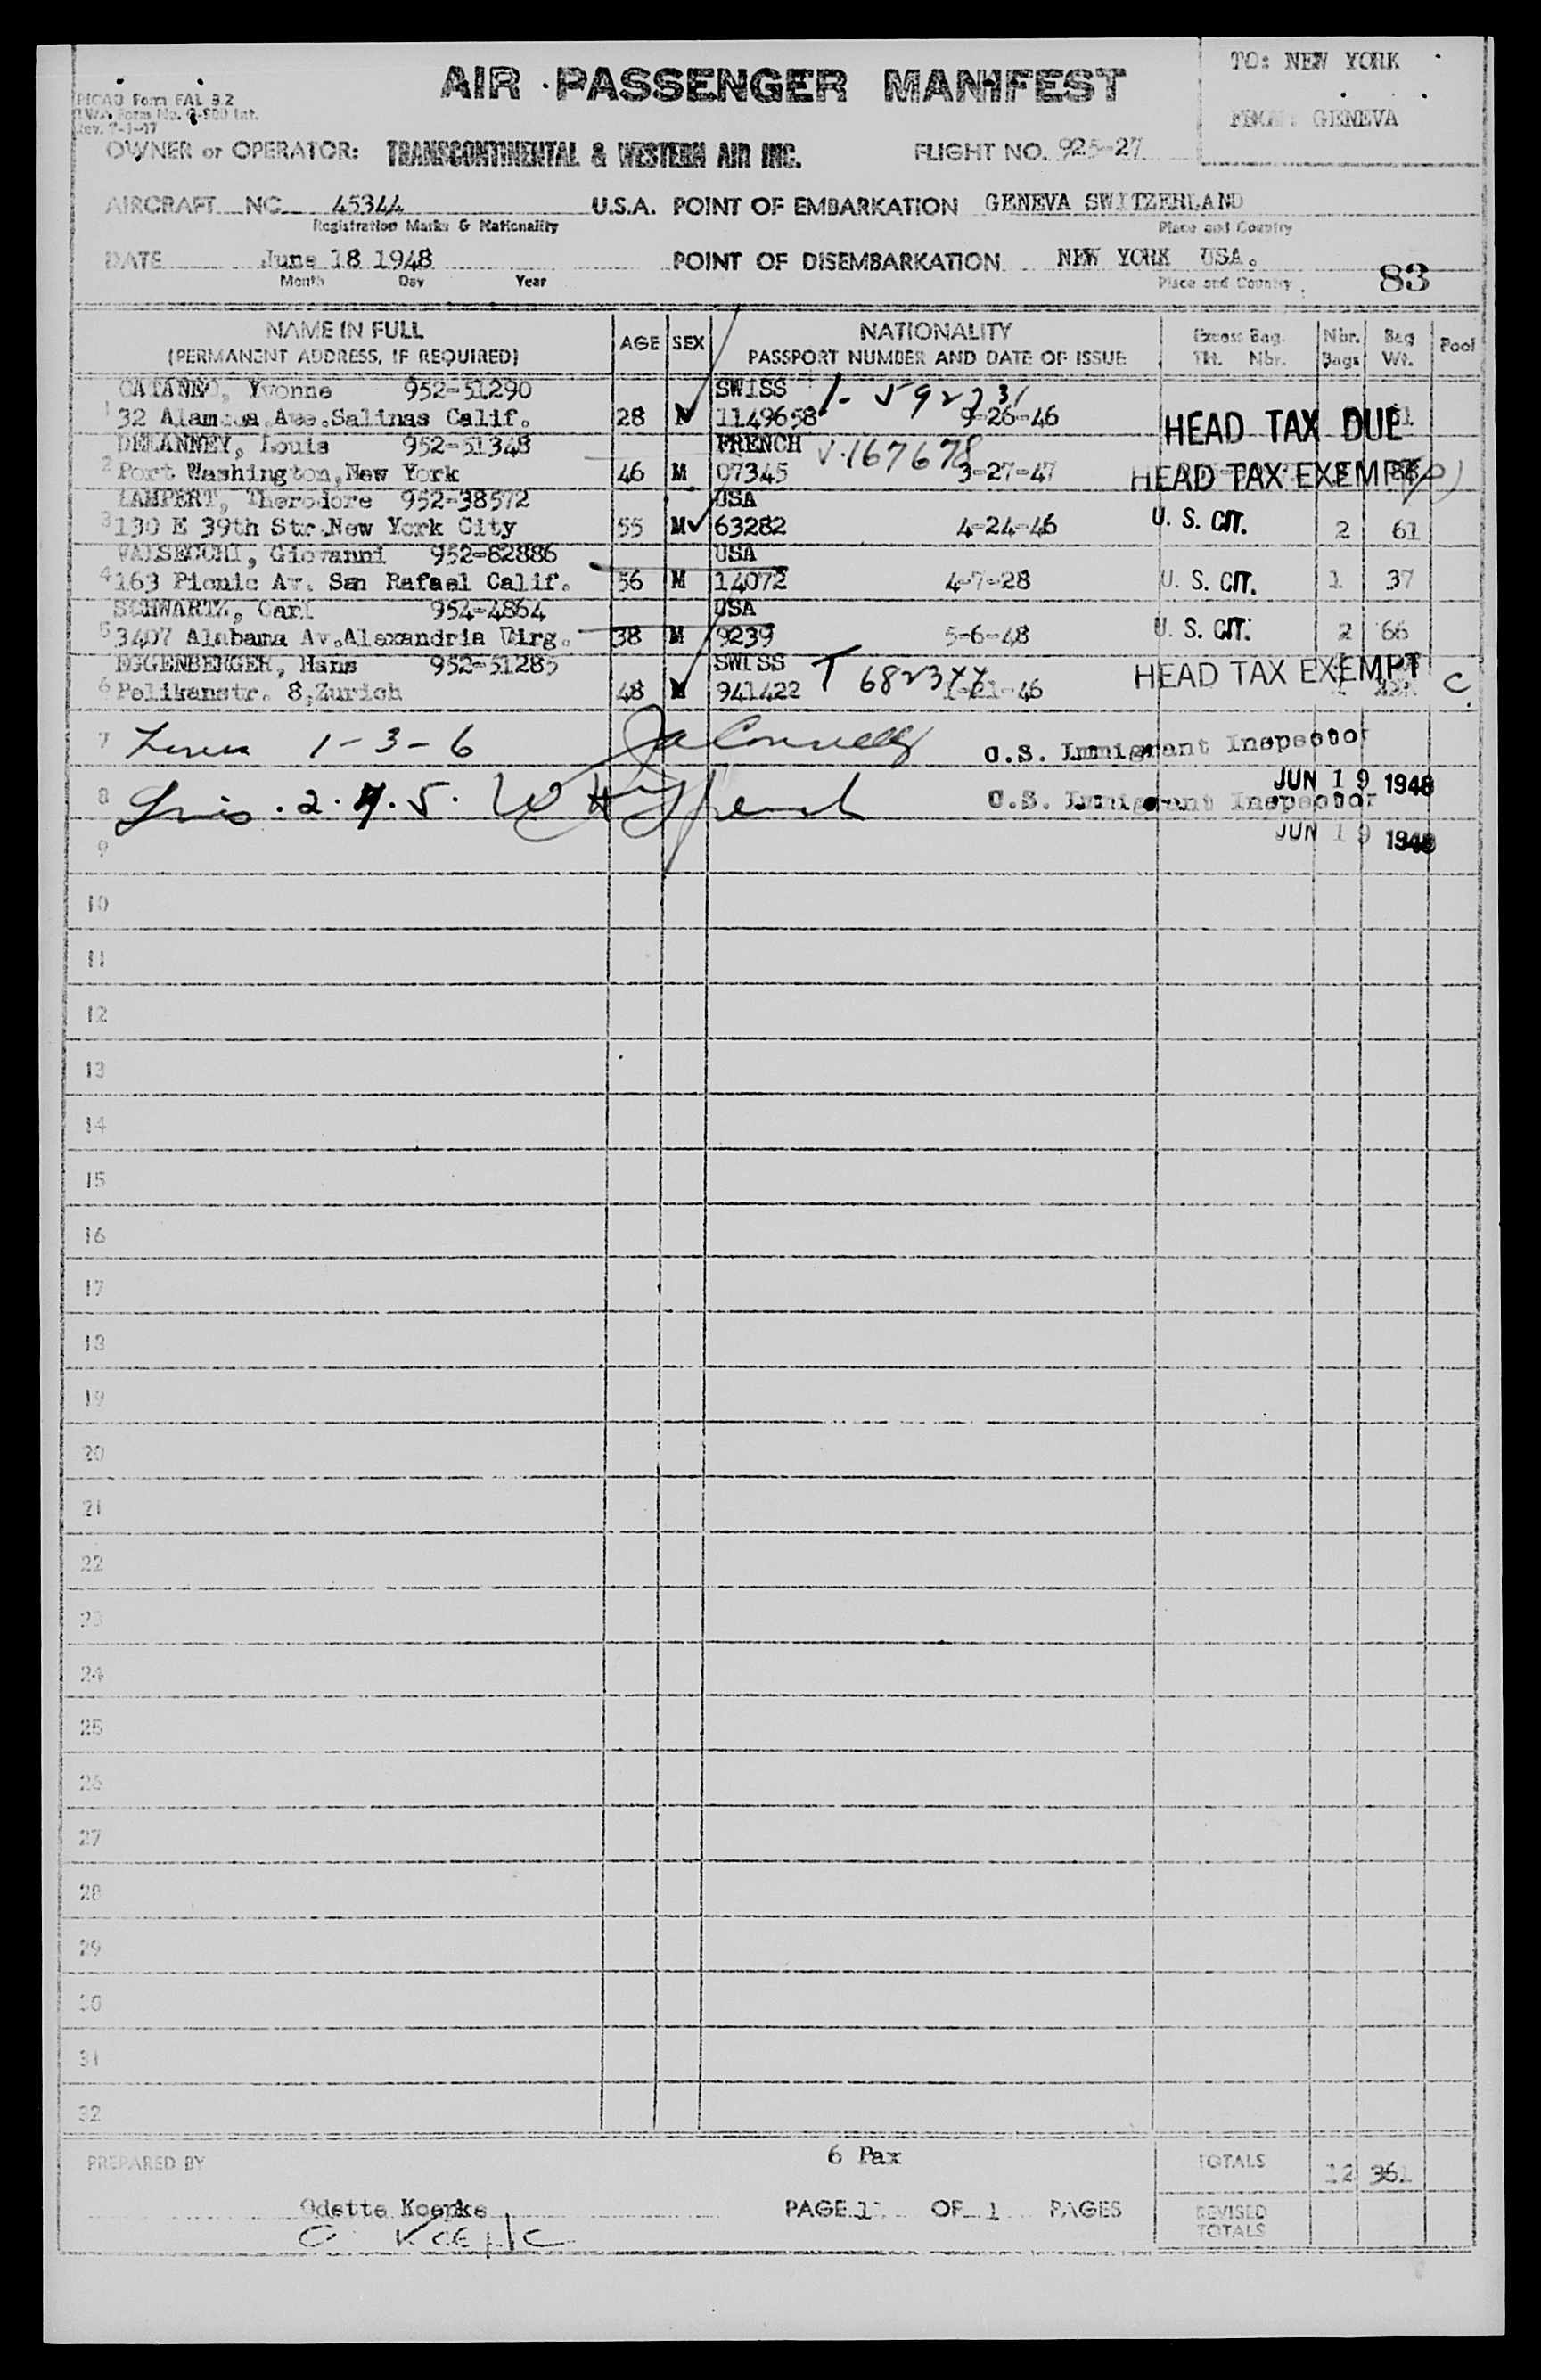 AIR PASSENGER MANIFEST
TO: NEW YORK
FROM: GENEVA
PICAO Form FAL 3.2
TWA Form No. Int.
Rev. 7-1-47
OWNER or OPERATOR: TRANSCONTINENTAL & WESTERN AIR INC. FLIGHT NO. 925-27
AIRCRAFT NC 45344 U.S.A. POINT OF EMBARKATION GENEVA SWITZERLAND
Registration Marks & Nationality Place and Country
DATE June 18 1948 POINT OF DISEMBARKATION NEW YORK USA.
Month Day Year Place and Country
83
NAME IN FULL AGE SEX NATIONALITY Excess Bag. Nbr. Bag Pool
(PERMANENT ADDRESS, IF REQUIRED) PASSPORT NUMBER AND DATE OF ISSUE Tkt. Nbr. Bags Wt.
Yvonne 952-51290 SWISS
1 32 Ave. Salinas Calif. 28 1149658 9-26-46 HEAD TAX DUE
DELANNEY, Louis 952-51348 FRENCH V.167678
2 Port Washington, New York 46 M 07345 3-27-47 HEAD TAX EXEMPT
LAMPERT, Therodore 952-38572 USA
3 130 E 39th Str. New York City 55 M 63282 4-24-46 U. S. CIT. 2 61
VALSECCHI, Giovanni 952-82886 USA
4 163 Picnic Av. San Rafael Calif. 56 M 14072 4-7-28 U. S. CIT. 1 37
SCHWARTZ, Carl 954-4864 USA
5 3407 Alabama Av. Alexandria Virg. 38 M 9239 5-6-48 U. S. CIT. 2 66
EGGENBERGER, Hans 952-51285 SWISS
6 Pelikanstr. 8, Zurich 48 941422 HEAD TAX EXEMPT C
7 1-3-6 U.S. Immigrant Inspector
JUN 19 1948
8 2. 4. 5. U.S. Immigrant Inspector
JUN 19 1948
9
10
11
12
13
14
15
16
17
18
19
20
21
22
23
24
25
26
27
28
29
30
31
32
PREPARED BY 6 Pax TOTALS 12 361
Odette Koepke PAGE 1 OF 1 PAGES REVISED
TOTALS
O Koepke